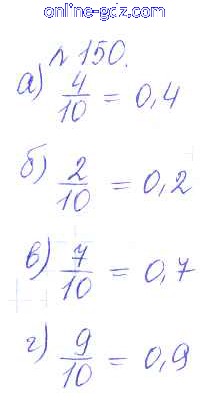 online-gdz.com
№ 150.
а) 4/10 = 0,4
б) 2/10 = 0,2
в) 7/10 = 0,7
г) 9/10 = 0,9